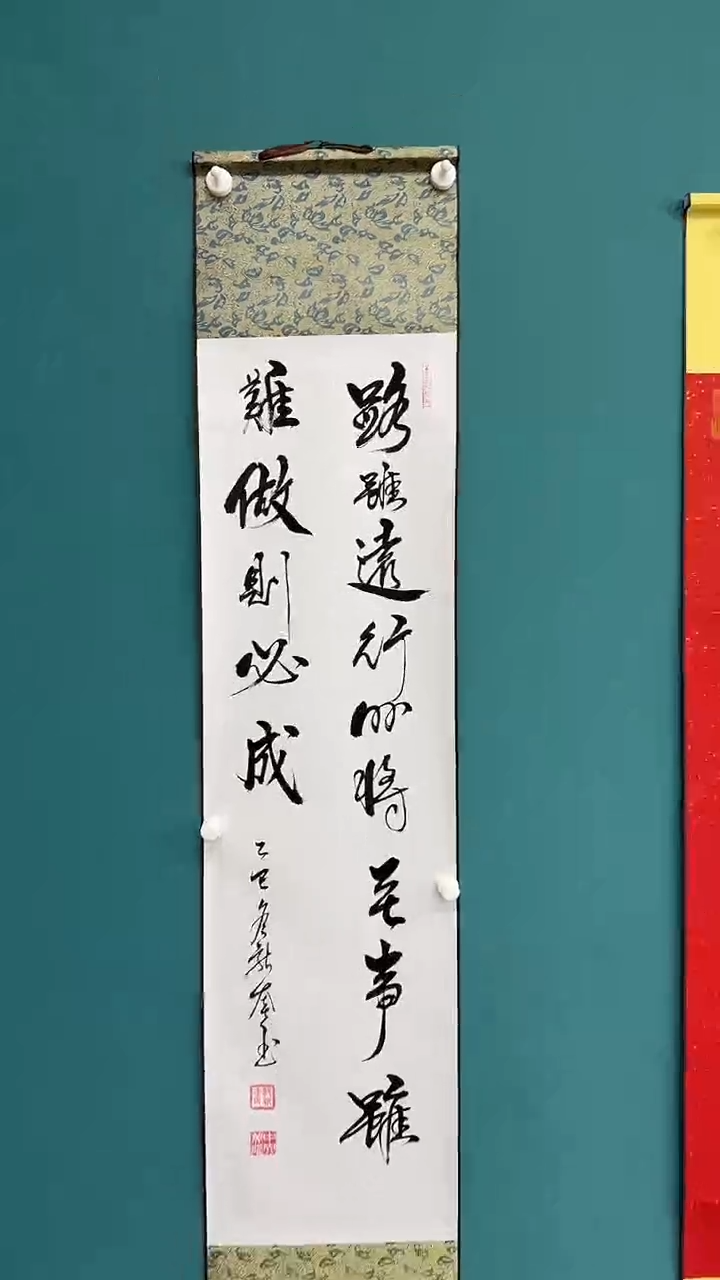 路雖遠行則將至事雖
難做則必成
乙巳冬